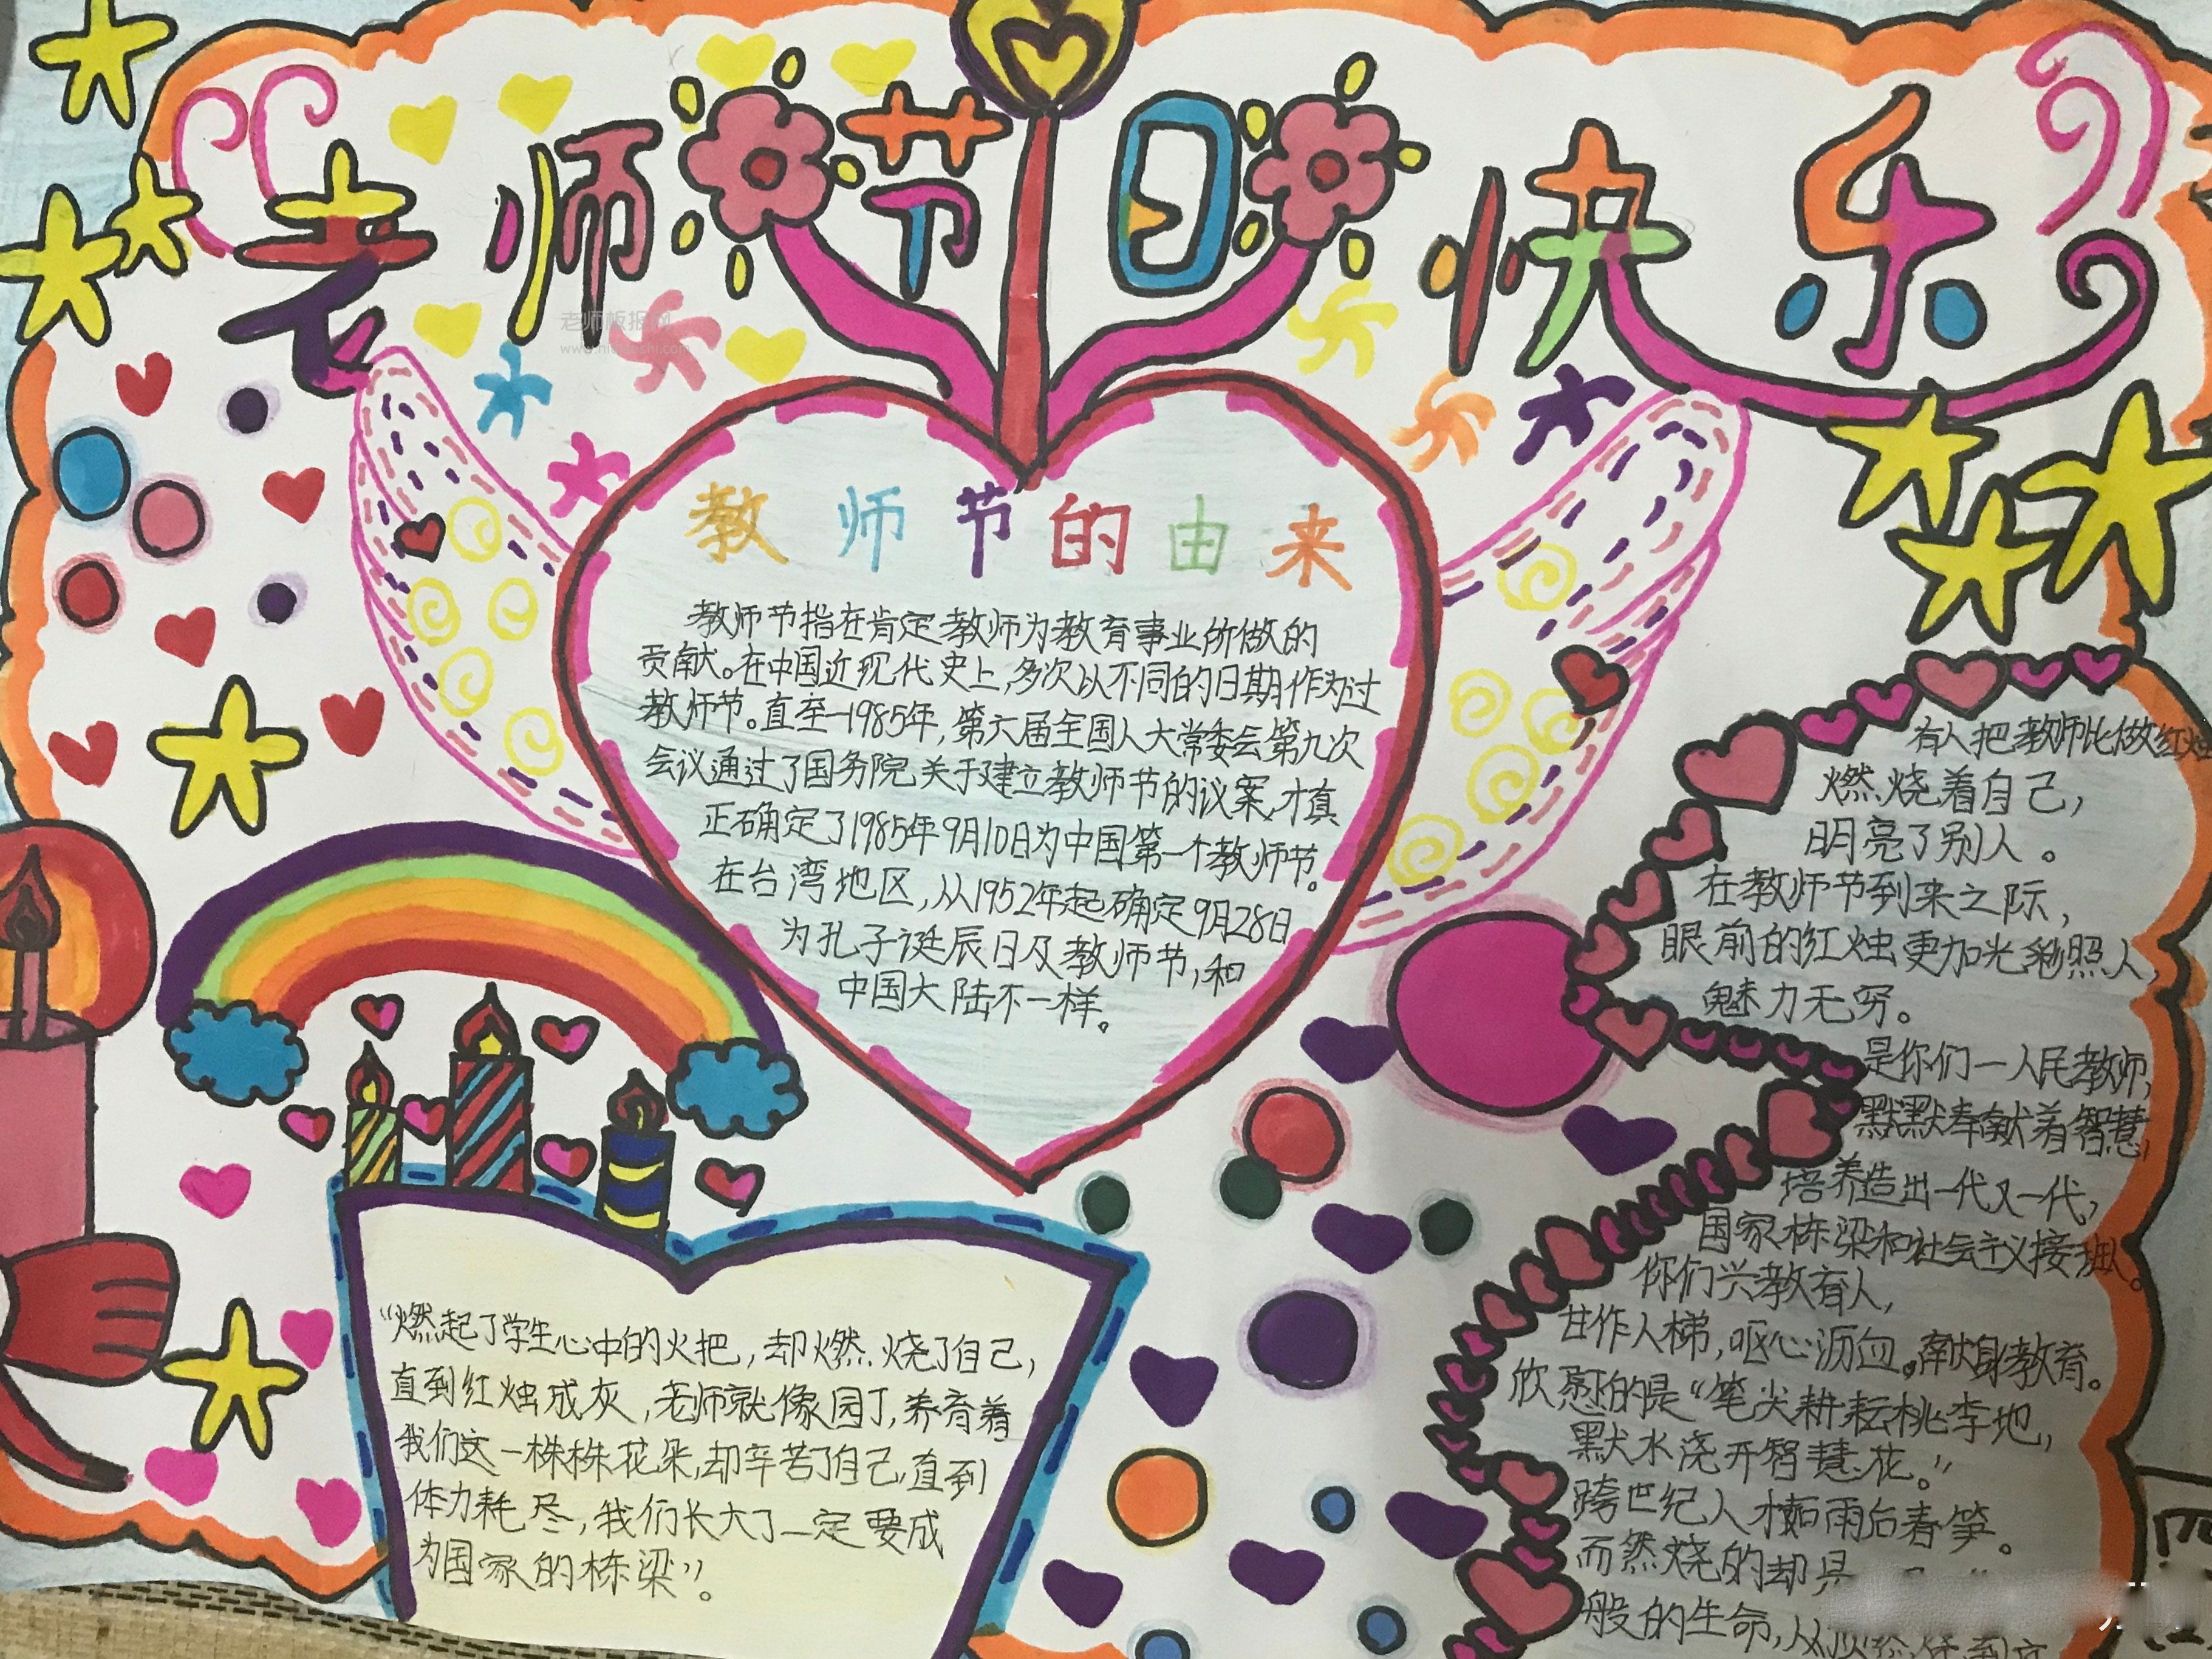 老师节日快乐
老师板报网
教师节的由来
教师节指在肯定教师为教育事业所做的
贡献。在中国近现代史上,多次以不同的日期作为过
教师节。直至1985年,第六届全国人大常委会第九次
会议通过了国务院关于建立教师节的议案,才真
正确定了1985年9月10日为中国第一个教师节。
在台湾地区,从1952年起确定9月28日
为孔子诞辰日及教师节,和
中国大陆不一样。
“燃起了学生心中的火把,却燃烧了自己,
直到红烛成灰,老师就像园丁,养育着
我们这一株株花朵,却辛苦了自己,直到
体力耗尽,我们长大了一定要成
为国家的栋梁”。
有人把教师比做红
燃烧着自己,
明亮了别人。
在教师节到来之际,
眼前的红烛更加光彩照人,
魅力无穷。
是你们一人民教师,
默默奉献着智慧,
培养造出一代又一代,
国家栋梁和社会主义接班人。
你们兴教育人,
甘作人梯,呕心沥血。献身教育。
欣慰的是“笔尖耕耘桃李地,
默水浇开智慧花。”
跨世纪人才如雨后春笋。
而燃烧的却是
般的生命,从